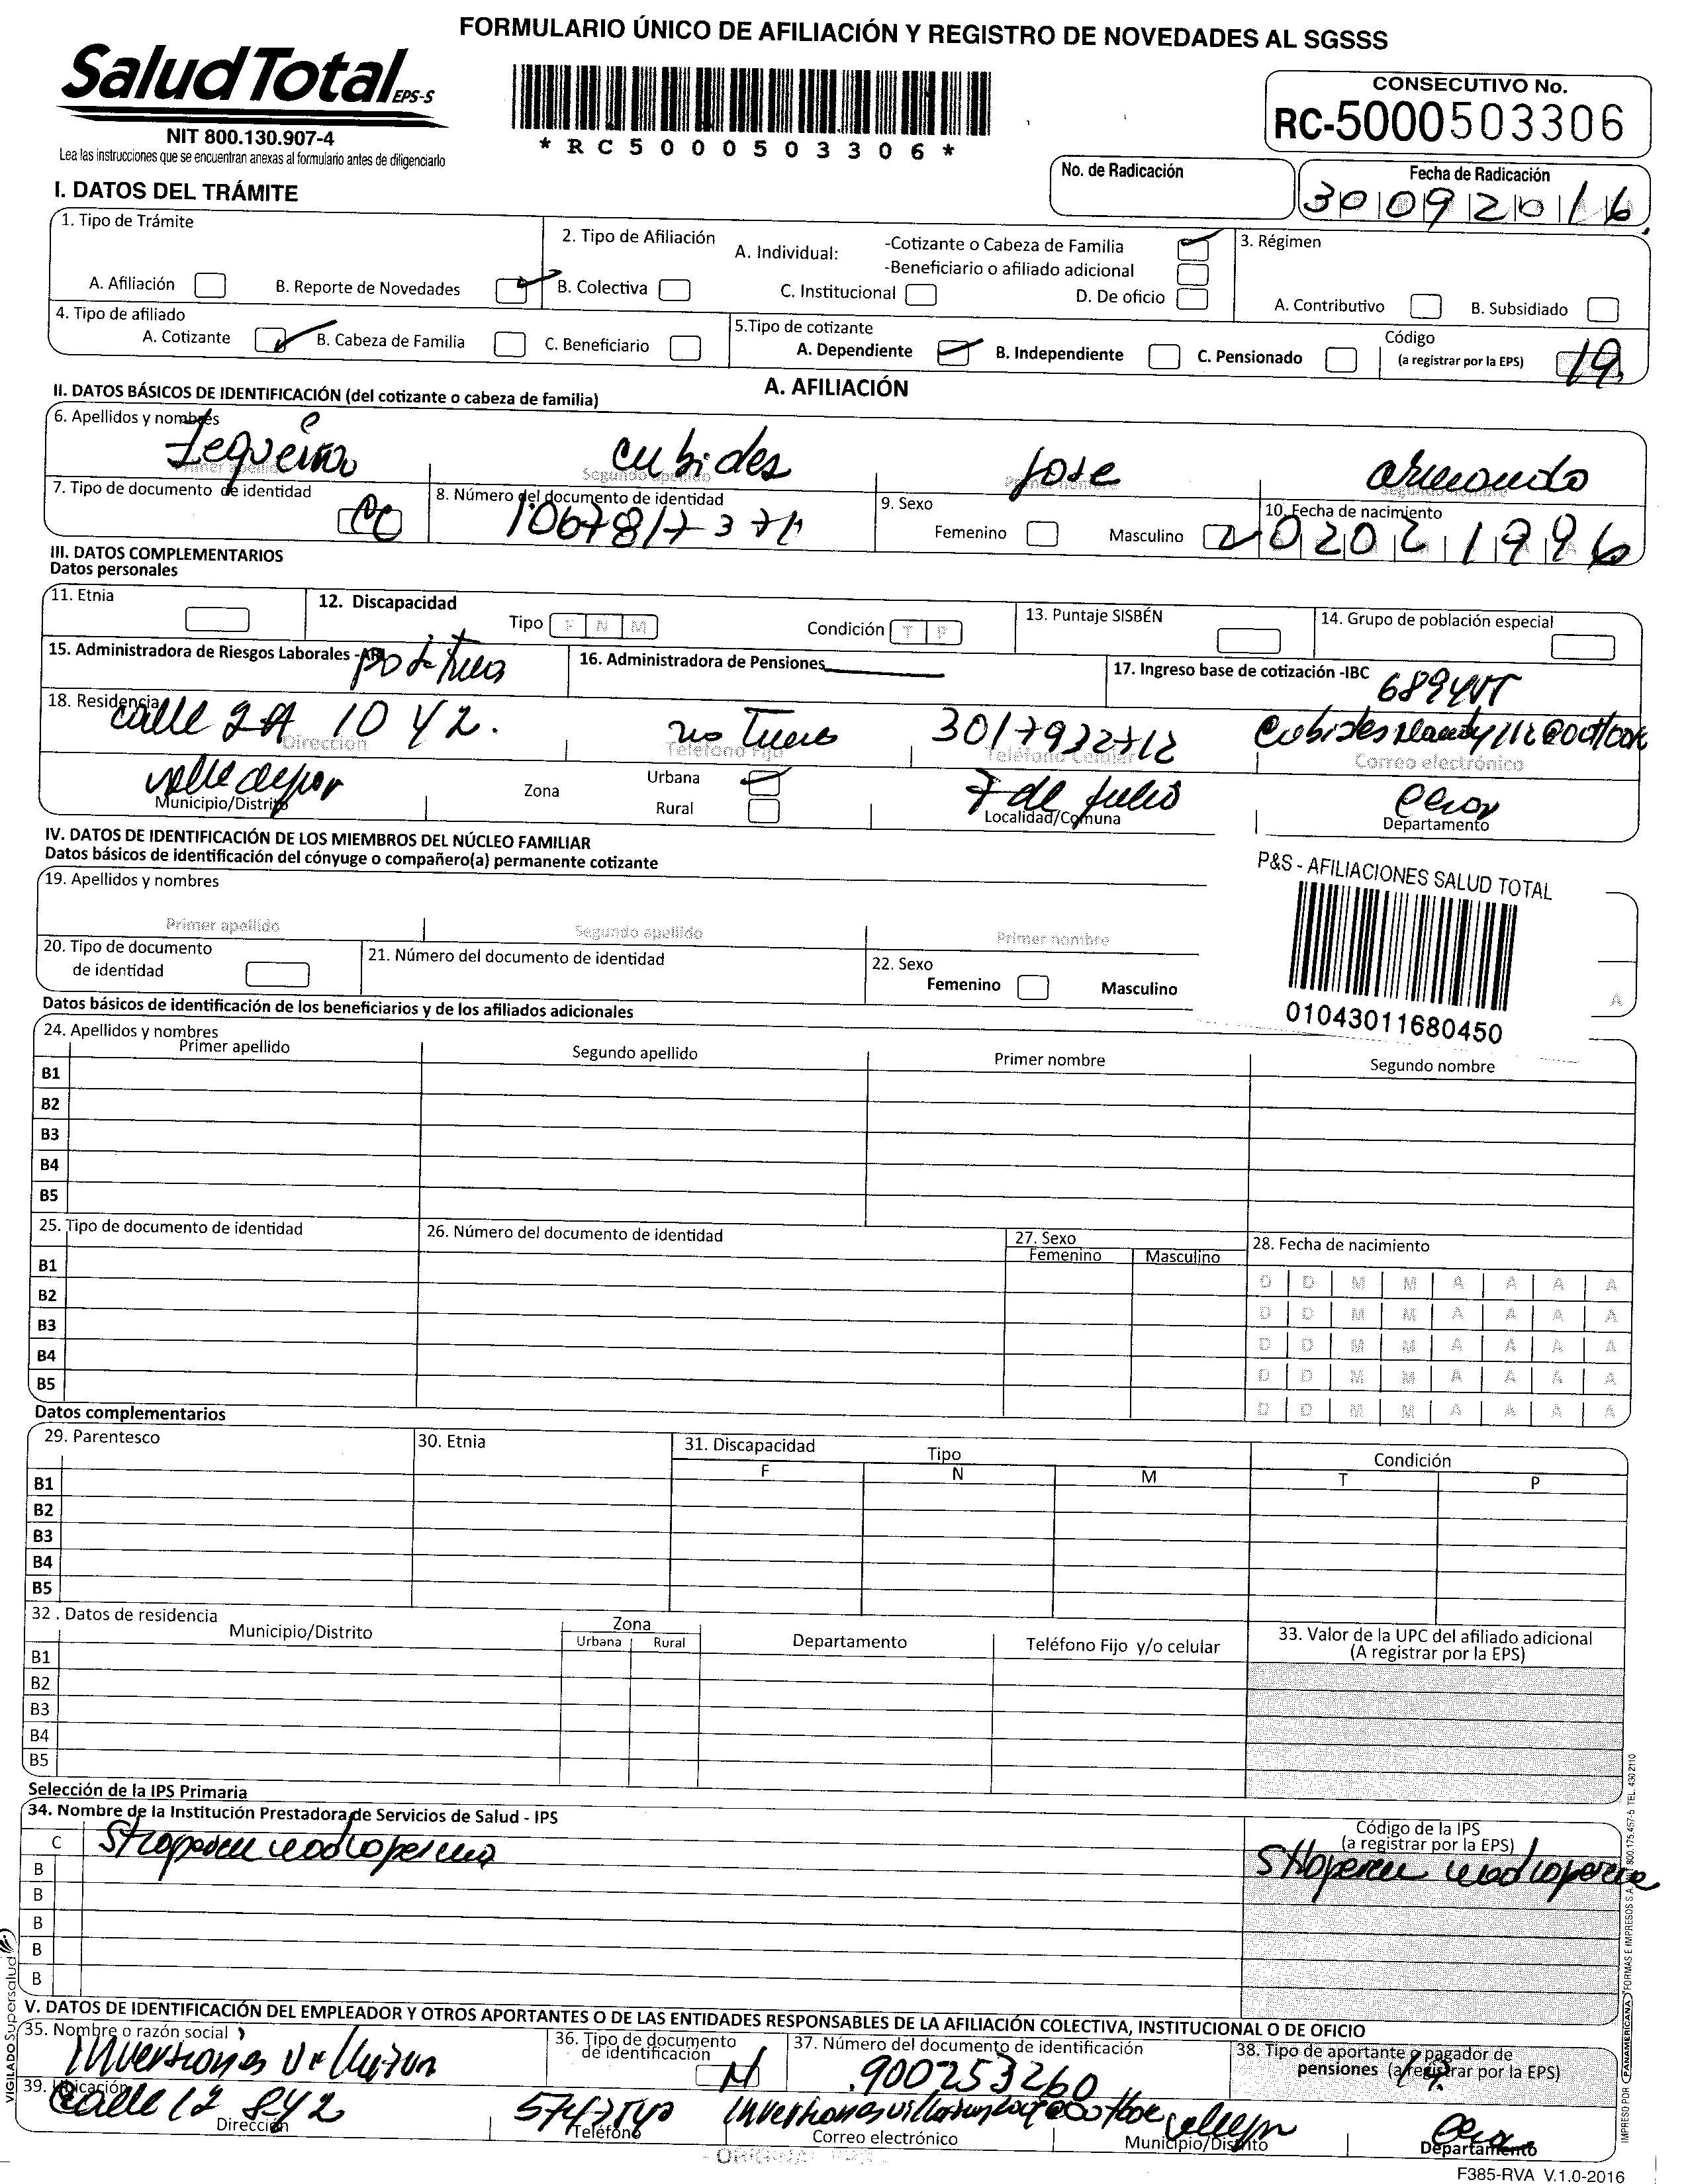 FORMULARIO ÚNICO DE AFILIACIÓN Y REGISTRO DE NOVEDADES AL SGSSS
SaludTotal EPS-S
NIT 800.130.907-4
Lea las instrucciones que se encuentran anexas al formulario antes de diligenciarlo
*RC5000503306*
CONSECUTIVO No.
RC-5000503306
No. de Radicación
Fecha de Radicación
30092016
I. DATOS DEL TRÁMITE
1. Tipo de Trámite
A. Afiliación B. Reporte de Novedades
2. Tipo de Afiliación A. Individual: -Cotizante o Cabeza de Familia
-Beneficiario o afiliado adicional
B. Colectiva C. Institucional D. De oficio
3. Régimen
A. Contributivo B. Subsidiado
4. Tipo de afiliado
A. Cotizante B. Cabeza de Familia C. Beneficiario
5.Tipo de cotizante
A. Dependiente B. Independiente C. Pensionado
Código
(a registrar por la EPS) 19
A. AFILIACIÓN
II. DATOS BÁSICOS DE IDENTIFICACIÓN (del cotizante o cabeza de familia)
6. Apellidos y nombres
cubides Jose armando
Primer apellido Segundo apellido Primer nombre Segundo nombre
7. Tipo de documento de identidad CC
8. Número del documento de identidad
9. Sexo
Femenino Masculino
10. Fecha de nacimiento
02021996
III. DATOS COMPLEMENTARIOS
Datos personales
11. Etnia
12. Discapacidad
Tipo F N M Condición T P
13. Puntaje SISBÉN
14. Grupo de población especial
15. Administradora de Riesgos Laborales -ARL positiva
16. Administradora de Pensiones
17. Ingreso base de cotización -IBC
18. Residencia
calle 2A 10 42. no Tiene 3017932712
Dirección Teléfono Fijo Teléfono Celular Correo electrónico
valledupar 7 de Julio Cesar
Zona Urbana
Rural
Municipio/Distrito Localidad/Comuna Departamento
IV. DATOS DE IDENTIFICACIÓN DE LOS MIEMBROS DEL NÚCLEO FAMILIAR
Datos básicos de identificación del cónyuge o compañero(a) permanente cotizante
P&S - AFILIACIONES SALUD TOTAL
01043011680450
19. Apellidos y nombres
Primer apellido Segundo apellido Primer nombre
20. Tipo de documento
de identidad
21. Número del documento de identidad
22. Sexo
Femenino Masculino
A
Datos básicos de identificación de los beneficiarios y de los afiliados adicionales
24. Apellidos y nombres
Primer apellido Segundo apellido Primer nombre Segundo nombre
B1
B2
B3
B4
B5
25. Tipo de documento de identidad 26. Número del documento de identidad 27. Sexo 28. Fecha de nacimiento
Femenino Masculino
B1 D D M M A A A A
B2 D D M M A A A A
B3 D D M M A A A A
B4 D D M M A A A A
B5 D D M M A A A A
Datos complementarios
29. Parentesco 30. Etnia 31. Discapacidad Tipo Condición
F N M T P
B1
B2
B3
B4
B5
32 . Datos de residencia
Municipio/Distrito Zona Departamento Teléfono Fijo y/o celular
Urbana Rural
33. Valor de la UPC del afiliado adicional
(A registrar por la EPS)
B1
B2
B3
B4
B5
Selección de la IPS Primaria
34. Nombre de la Institución Prestadora de Servicios de Salud - IPS
Código de la IPS
(a registrar por la EPS)
C
B
B
B
B
B
V. DATOS DE IDENTIFICACIÓN DEL EMPLEADOR Y OTROS APORTANTES O DE LAS ENTIDADES RESPONSABLES DE LA AFILIACIÓN COLECTIVA, INSTITUCIONAL O DE OFICIO
35. Nombre o razón social
Inversiones
36. Tipo de documento
de identificación N
37. Número del documento de identificación
900253260
38. Tipo de aportante o pagador de
pensiones (a registrar por la EPS)
39. Ubicación
calle 12 842 Cesar
Dirección Teléfono Correo electrónico Municipio/Distrito Departamento
F385-RVA V.1.0-2016
VIGILADO Supersalud
IMPRESO POR PANAMERICANA FORMAS E IMPRESOS S.A. NIT 800.175.457-5 TEL. 430 2110